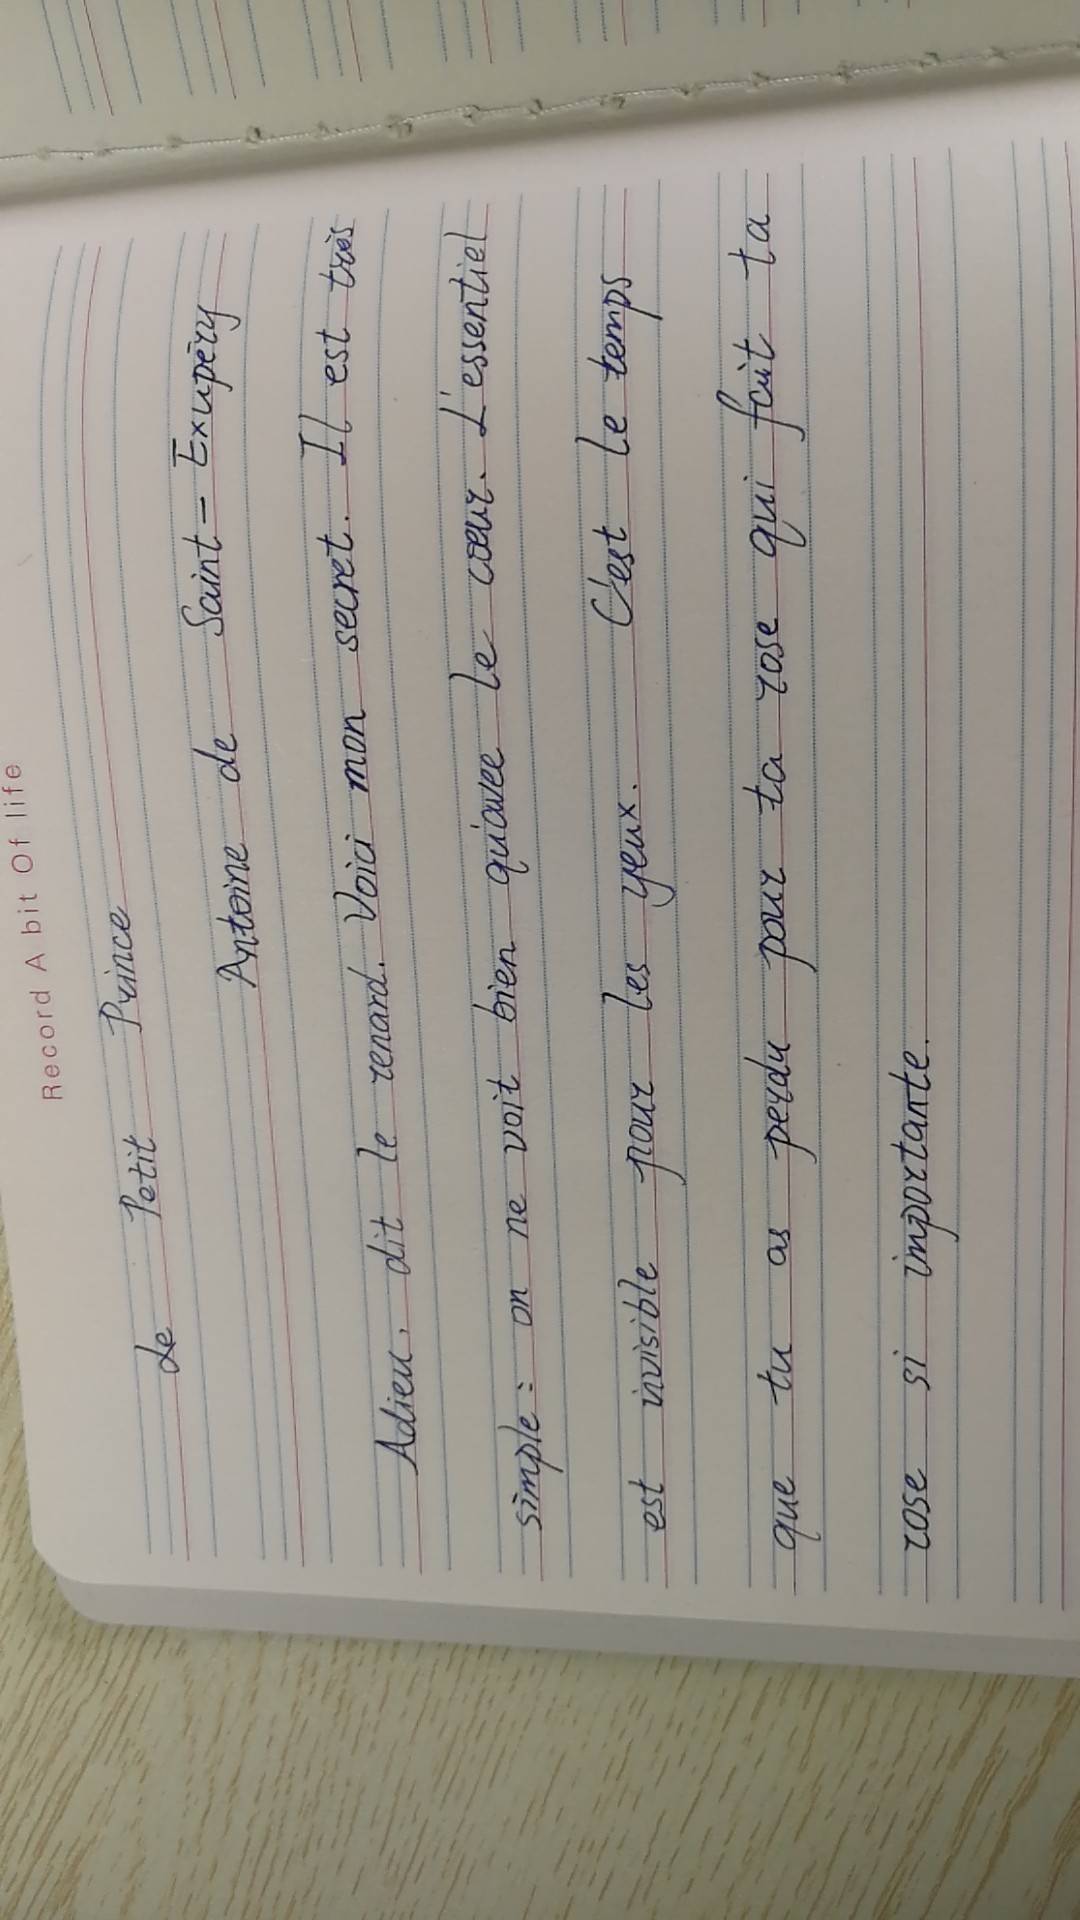 Record A bit Of life
Le Petit Prince
Antoine de Saint-Exupéry
Adieu, dit le renard. Voici mon secret. Il est très
simple: on ne voit bien qu'avec le cœur. L'essentiel
est invisible pour les yeux. C'est le temps
que tu as perdu pour ta rose qui fait ta
rose si importante.